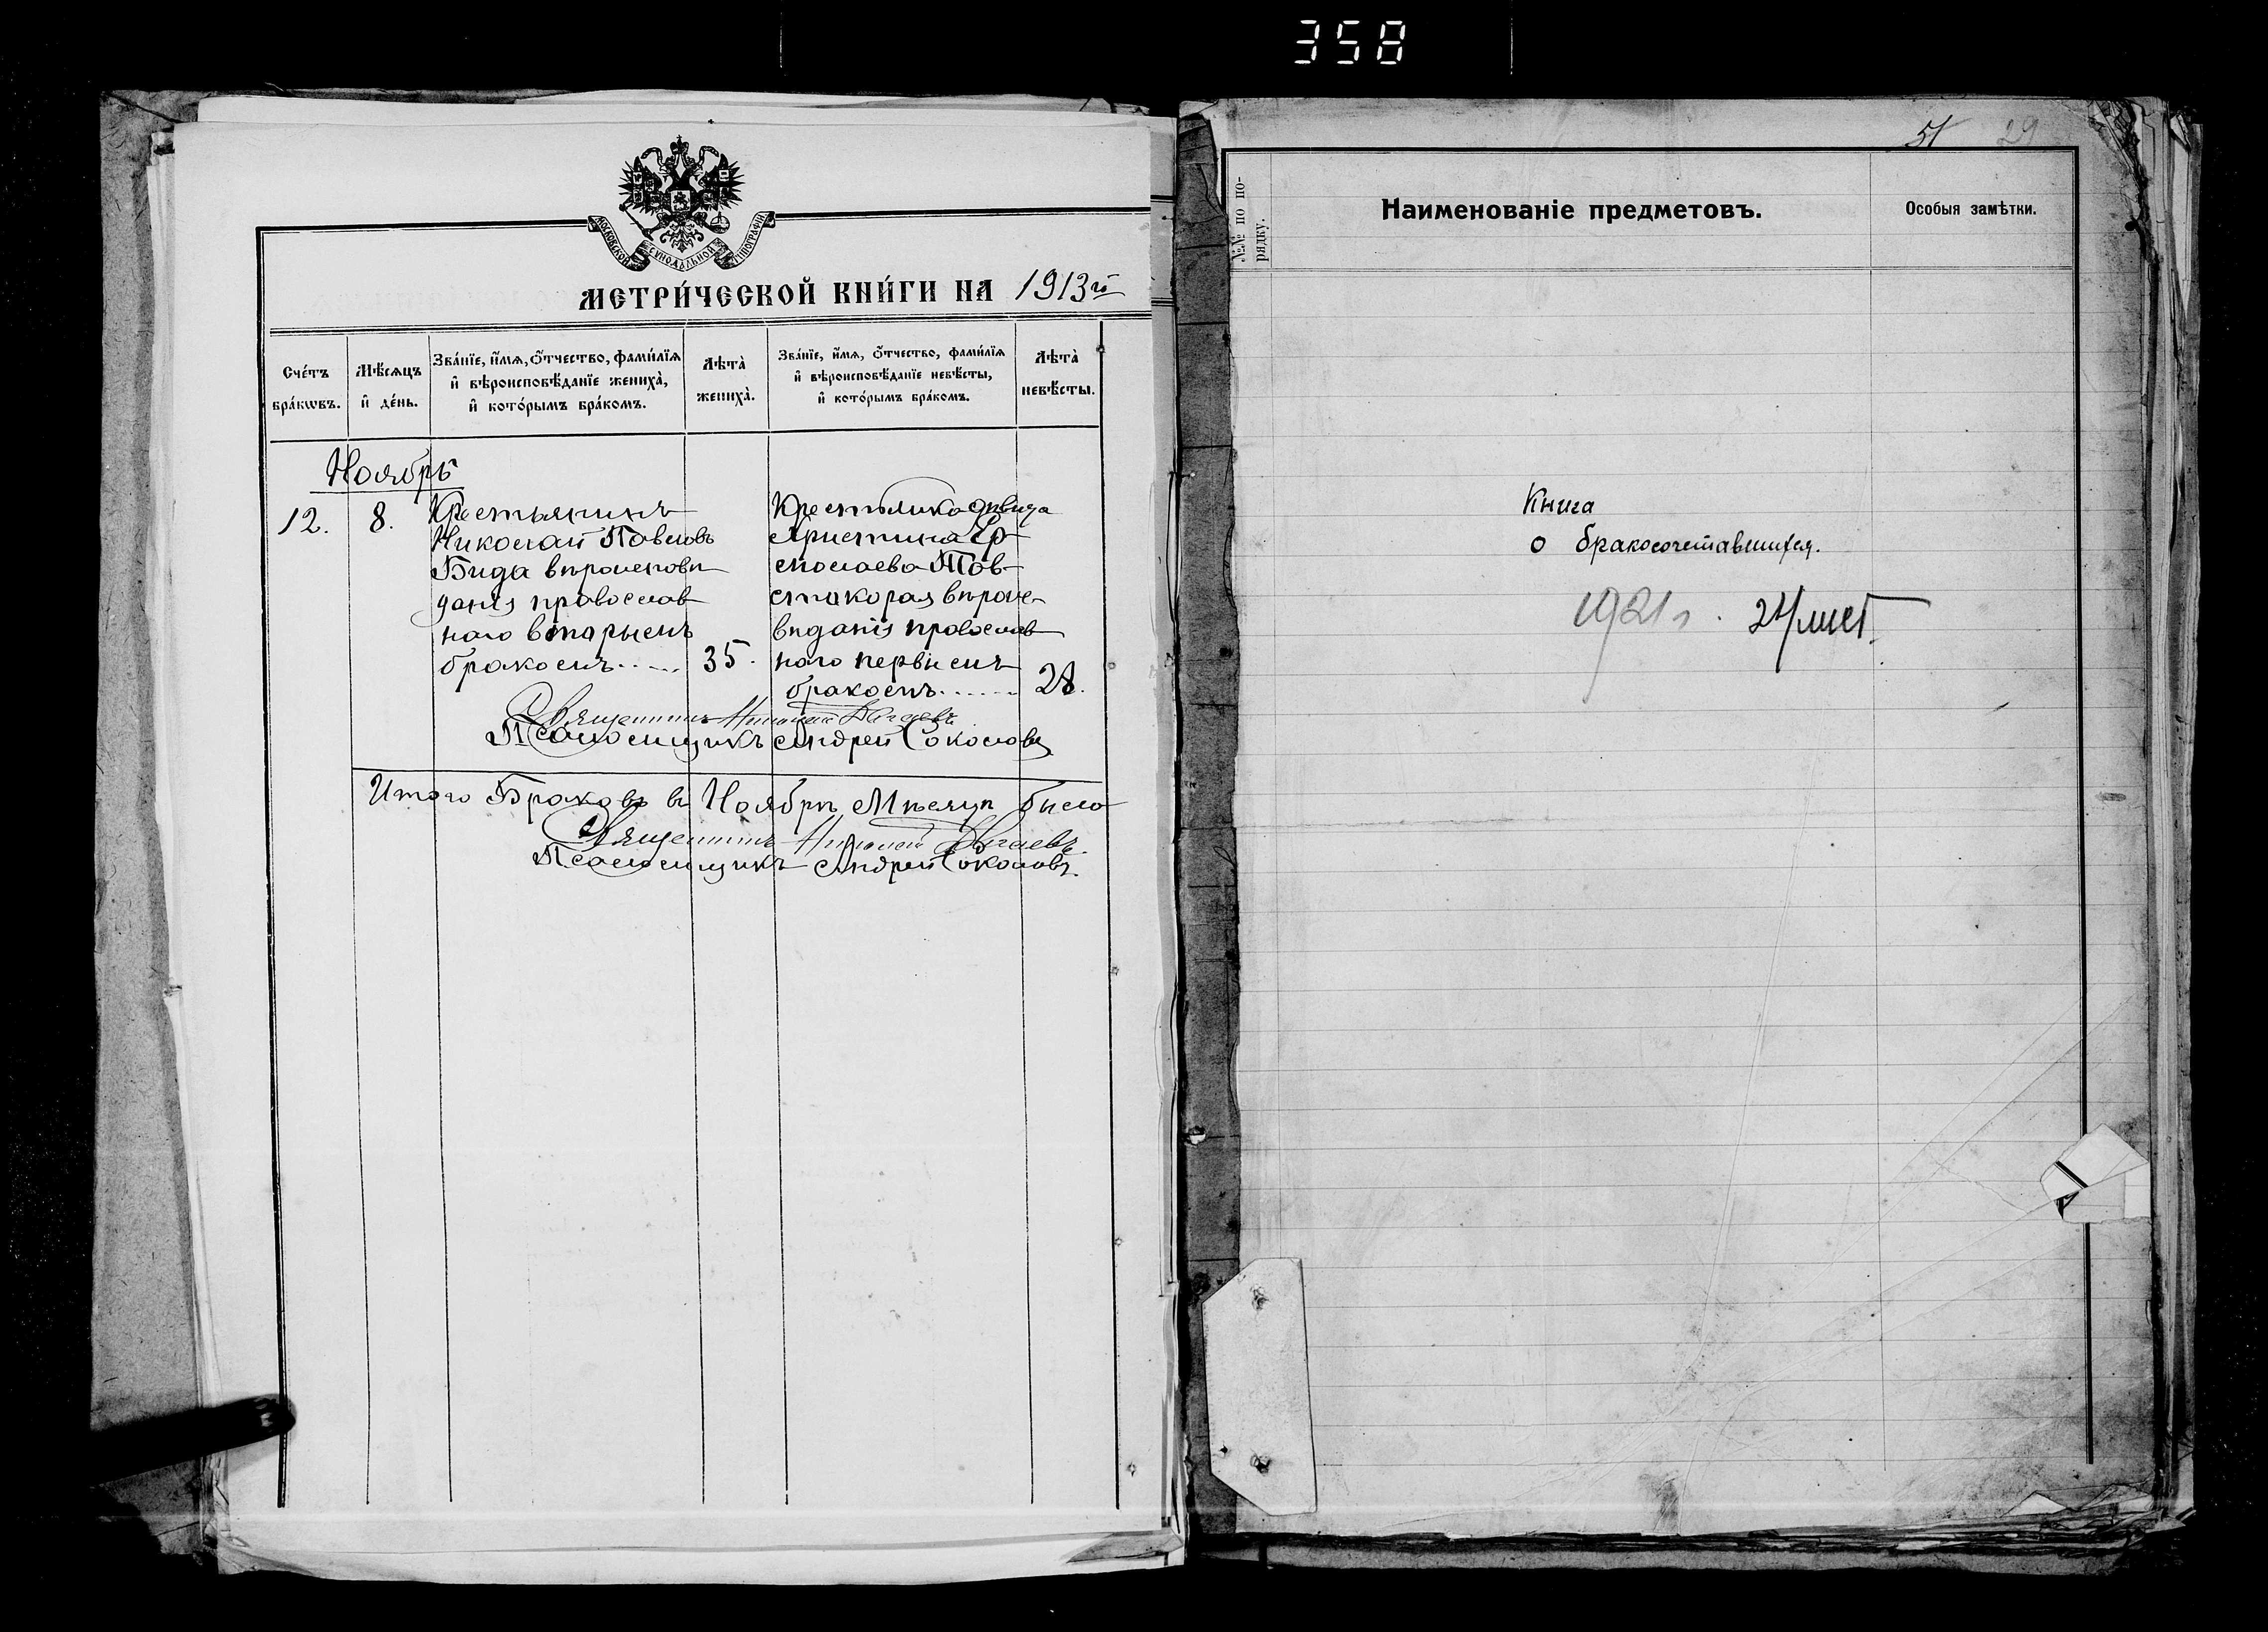 358
МОСКОВСКОЙ СУНОДАЛЬНОЙ ТИПОГРАФІИ
МЕТРИ́ЧЕСКОЙ КНИ́ГИ НА 1913й
Сче́тъ бра́кωвъ.
Мѣ́сяцъ и҆ де́нь.
Зва́нїе, и҆́мѧ, ѻ҆́тчество, фами́лїѧ
и҆ вѣроисповѣ́данїе жениха̀,
и҆ кото́рымъ бра́комъ.
Лѣта̀ жениха̀.
Зва́нїе, и҆́мѧ, ѻ҆́тчество, фами́лїѧ
и҆ вѣроисповѣ́данїе невѣ́сты,
и҆ кото́рымъ бра́комъ.
Лѣта̀ невѣ́сты.
Ноябрь
12.
8.
Крестьянинъ
Николай Павловъ
Бида вѣроисповѣ
данія православ
наго вторымъ
бракомъ.....
35.
Крестьянка дѣвица
Христина
православ
наго первымъ
бракомъ......
28.
Священникъ Николай
Псаломщикъ Андрей Соколовъ
Итого Браковъ въ Ноябрѣ Мѣсяцѣ было
Священникъ Николай
Псаломщикъ Андрей Соколовъ.
51 29
№№ по по-
рядку.
Наименованіе предметовъ.
Особыя замѣтки.
Книга
о бракосочетавшихся.
1921 г.